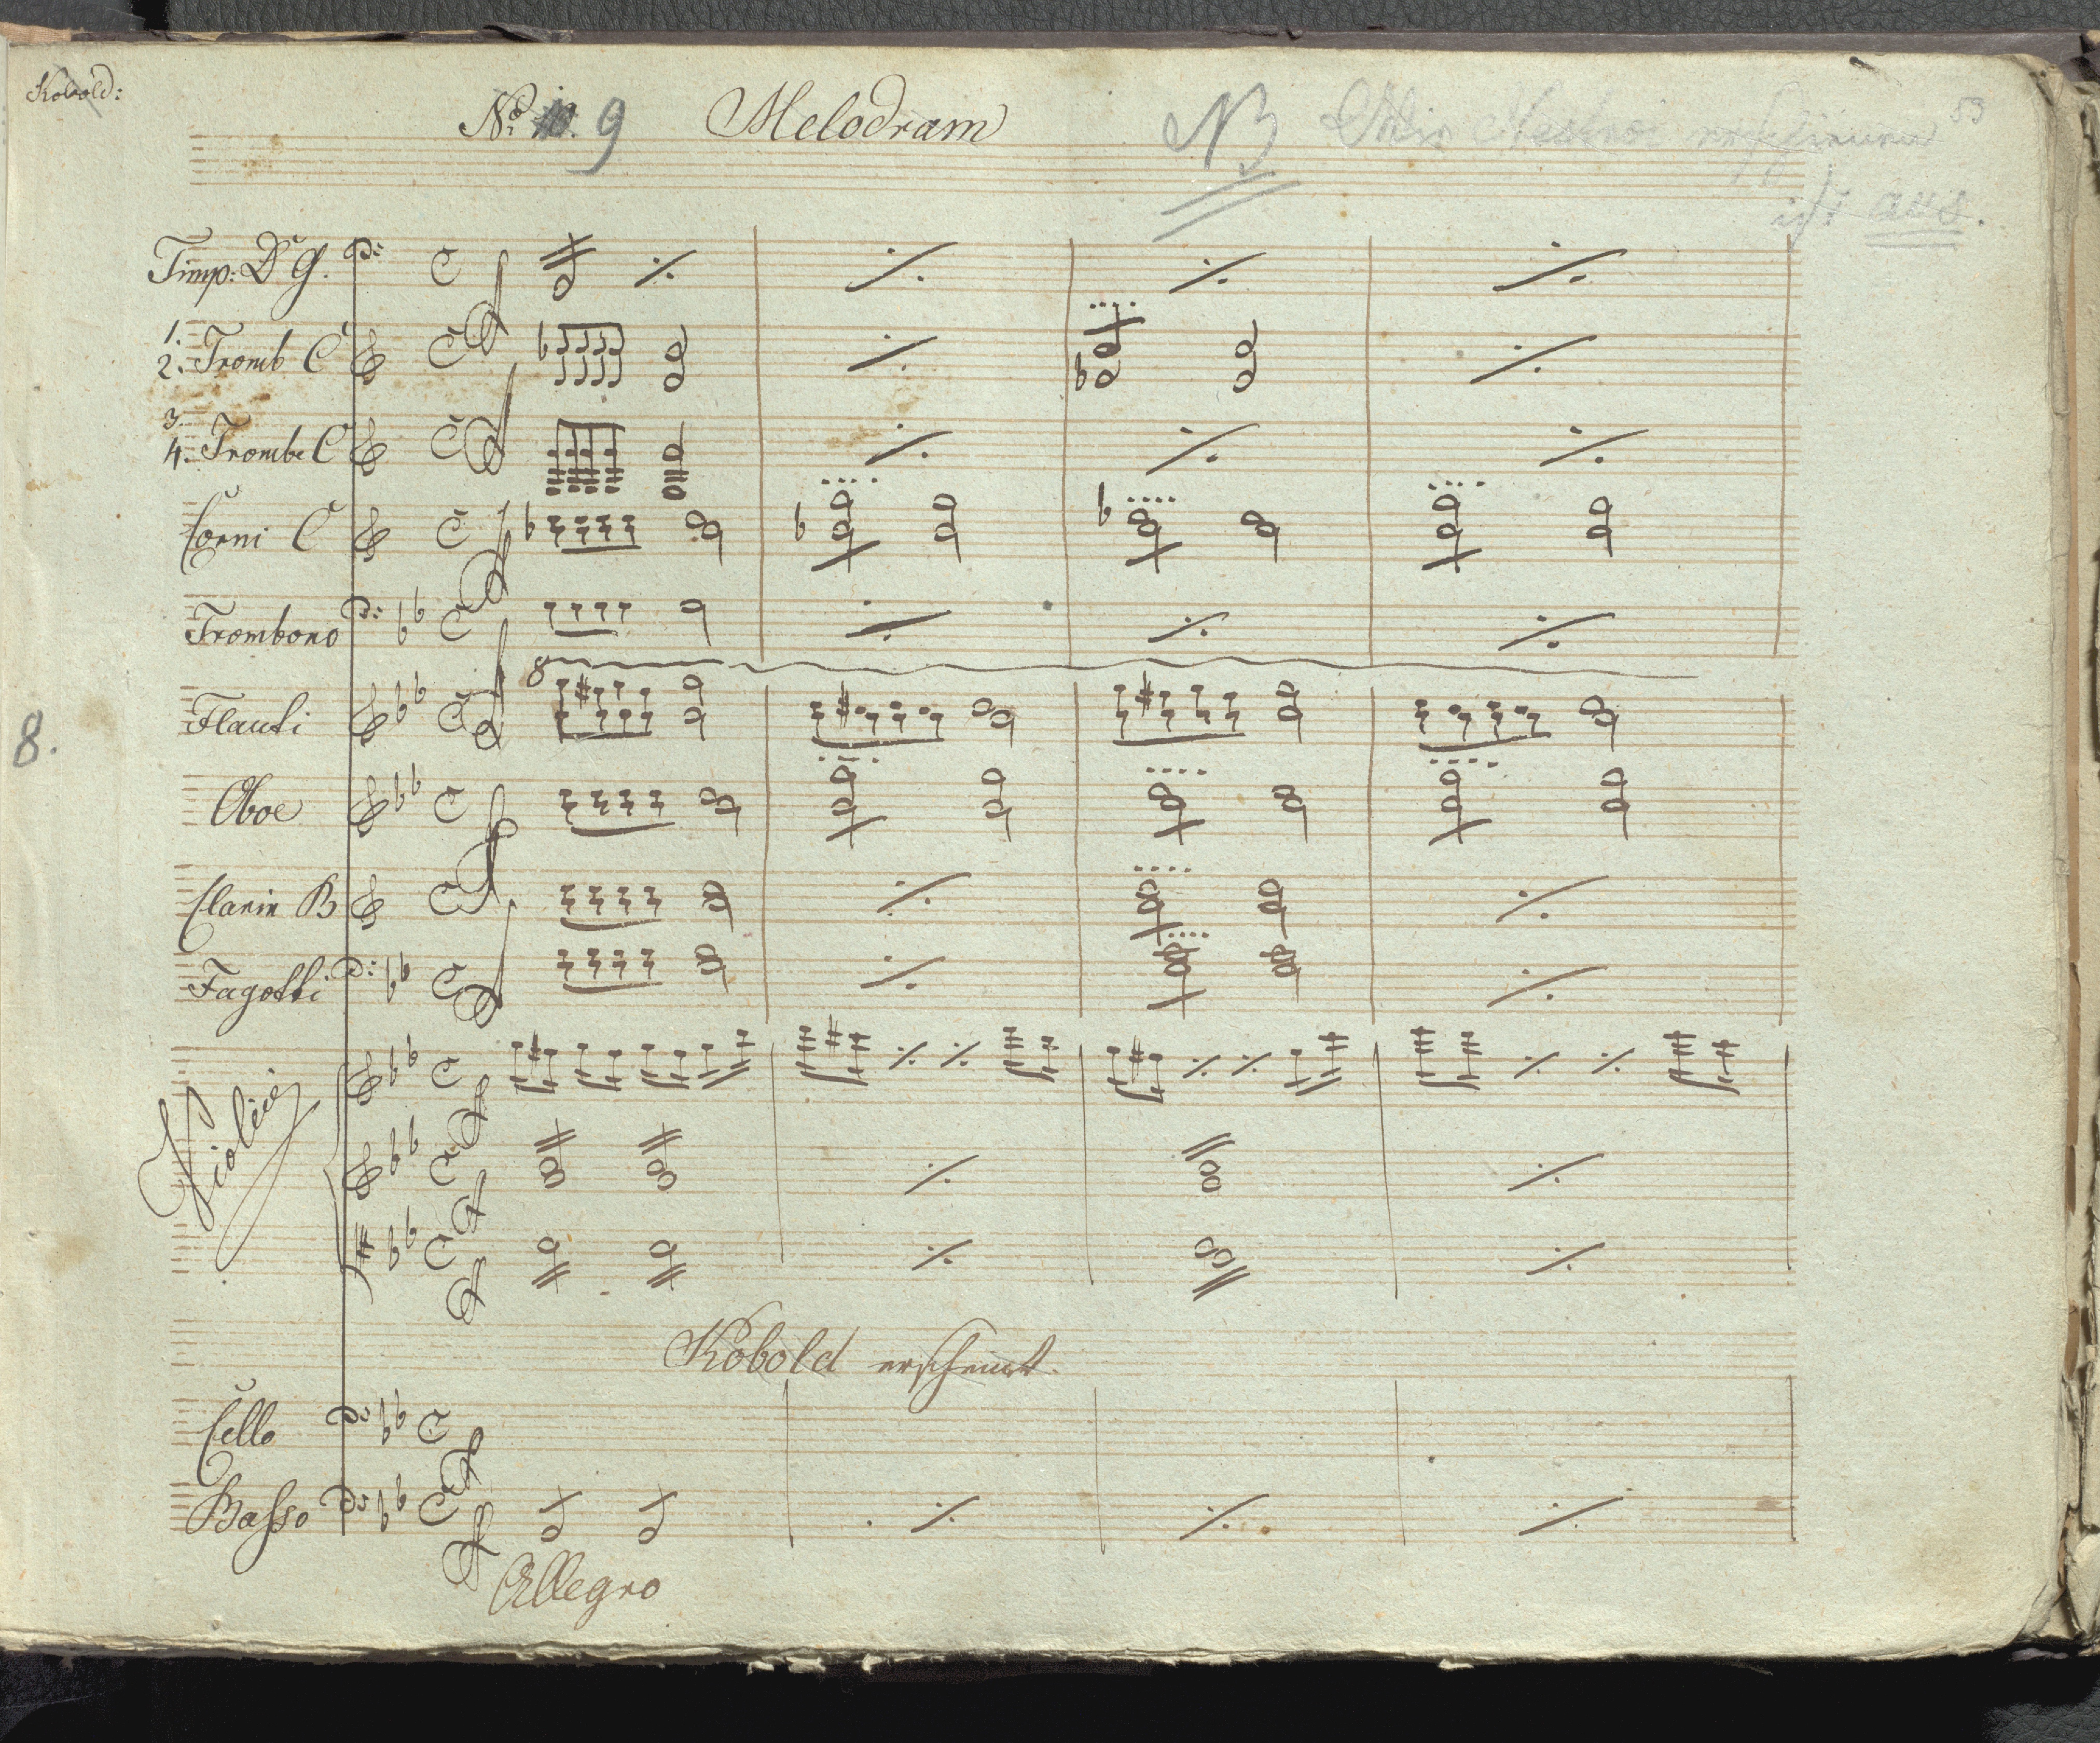 Kobold:
No. 9 Melodram NB
53
ist aus.
Timp: D G.
1.
2. Tromb C
3.
4. Trombe C
Corni C
Trombono
8
Flauti
8.
Oboe
Clarin B
Fagotti
Violini
Kobold erscheint
Cello
Basso
Allegro